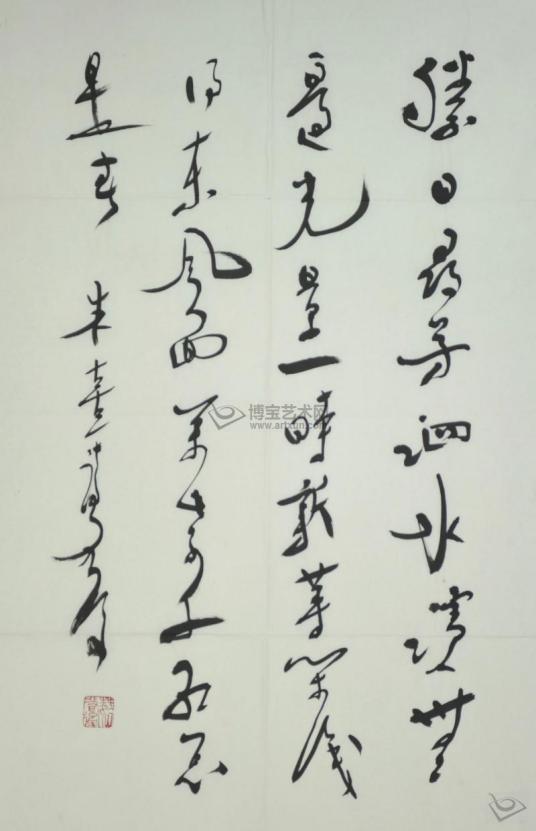 勝日尋芳泗水濱無
邊光景一時新等閒識
得東風面萬紫千紅总
是春 朱熹詩
博宝艺术网
www.artxun.com